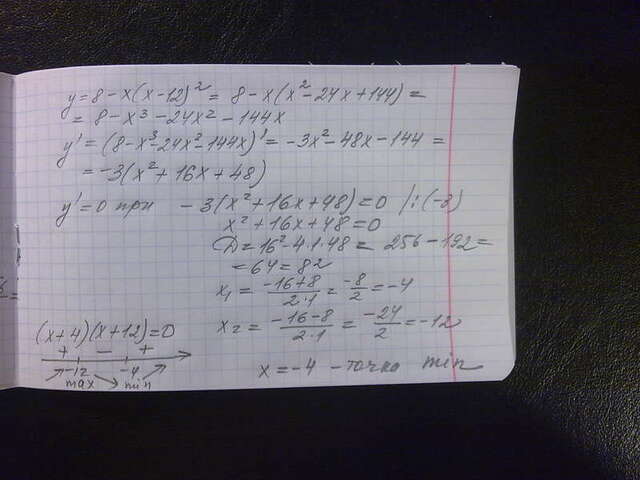 y = 8 - x(x-12)² = 8 - x(x² - 24x + 144) =
= 8 - x³ - 24x² - 144x
y' = (8 - x³ - 24x² - 144x)' = -3x² - 48x - 144 =
= -3(x² + 16x + 48)
y' = 0 при -3(x² + 16x + 48) = 0 /:(-3)
x² + 16x + 48 = 0
D = 16² - 4·1·48 = 256 - 192 =
= 64 = 8²
x₁ = (-16+8)/(2·1) = -8/2 = -4
x₂ = (-16-8)/(2·1) = -24/2 = -12
(x+4)(x+12) = 0
+ - +
-12 -4
max min
x = -4 - точка min